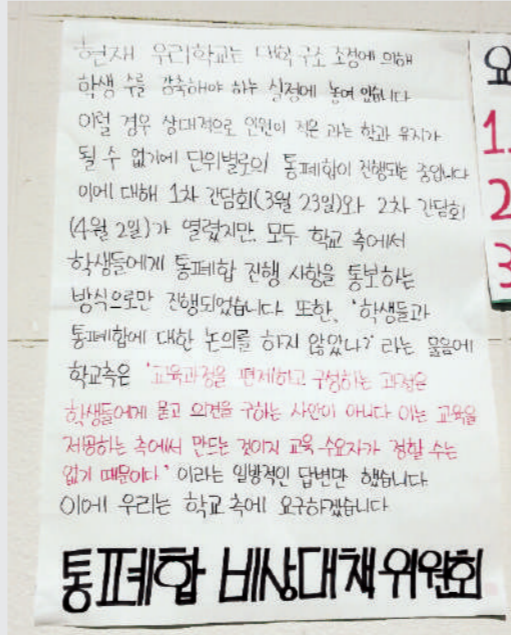 현재 우리학교는 대학 구조 조정에 의해
학생 수를 감축해야 하는 실정에 놓여 있습니다
이럴 경우 상대적으로 인원이 적은 과는 학과 유지가
될 수 없기에 단위별로의 통폐합이 진행되는 중입니다
이에 대해 1차 간담회(3월 23일)와 2차 간담회
(4월 2일)가 열렸지만, 모두 학교 측에서
학생들에게 통폐합 진행 사항을 통보하는
방식으로만 진행되었습니다 또한, '학생들과
통폐합에 대한 논의를 하지 않았나?' 라는 물음에
학교측은 '교육과정을 편제하고 구성하는 과정은
학생들에게 묻고 의견을 구하는 사안이 아니다 이는 교육을
제공하는 측에서 만드는 것이지 교육 수요자가 정할 수는
없기 때문이다' 이라는 일방적인 답변만 했습니다
이에 우리는 학교 측에 요구하겠습니다
통폐합 비상대책위원회
요
1.
2
3